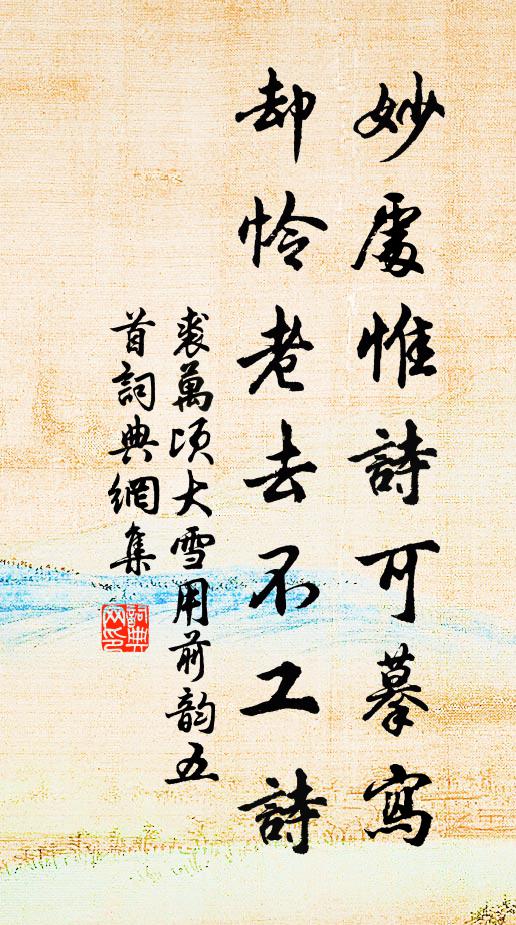 妙處惟詩可摹寫
却怜老去不工詩
裘萬頃大雪用前韵五
首詞典網集
詞典網印